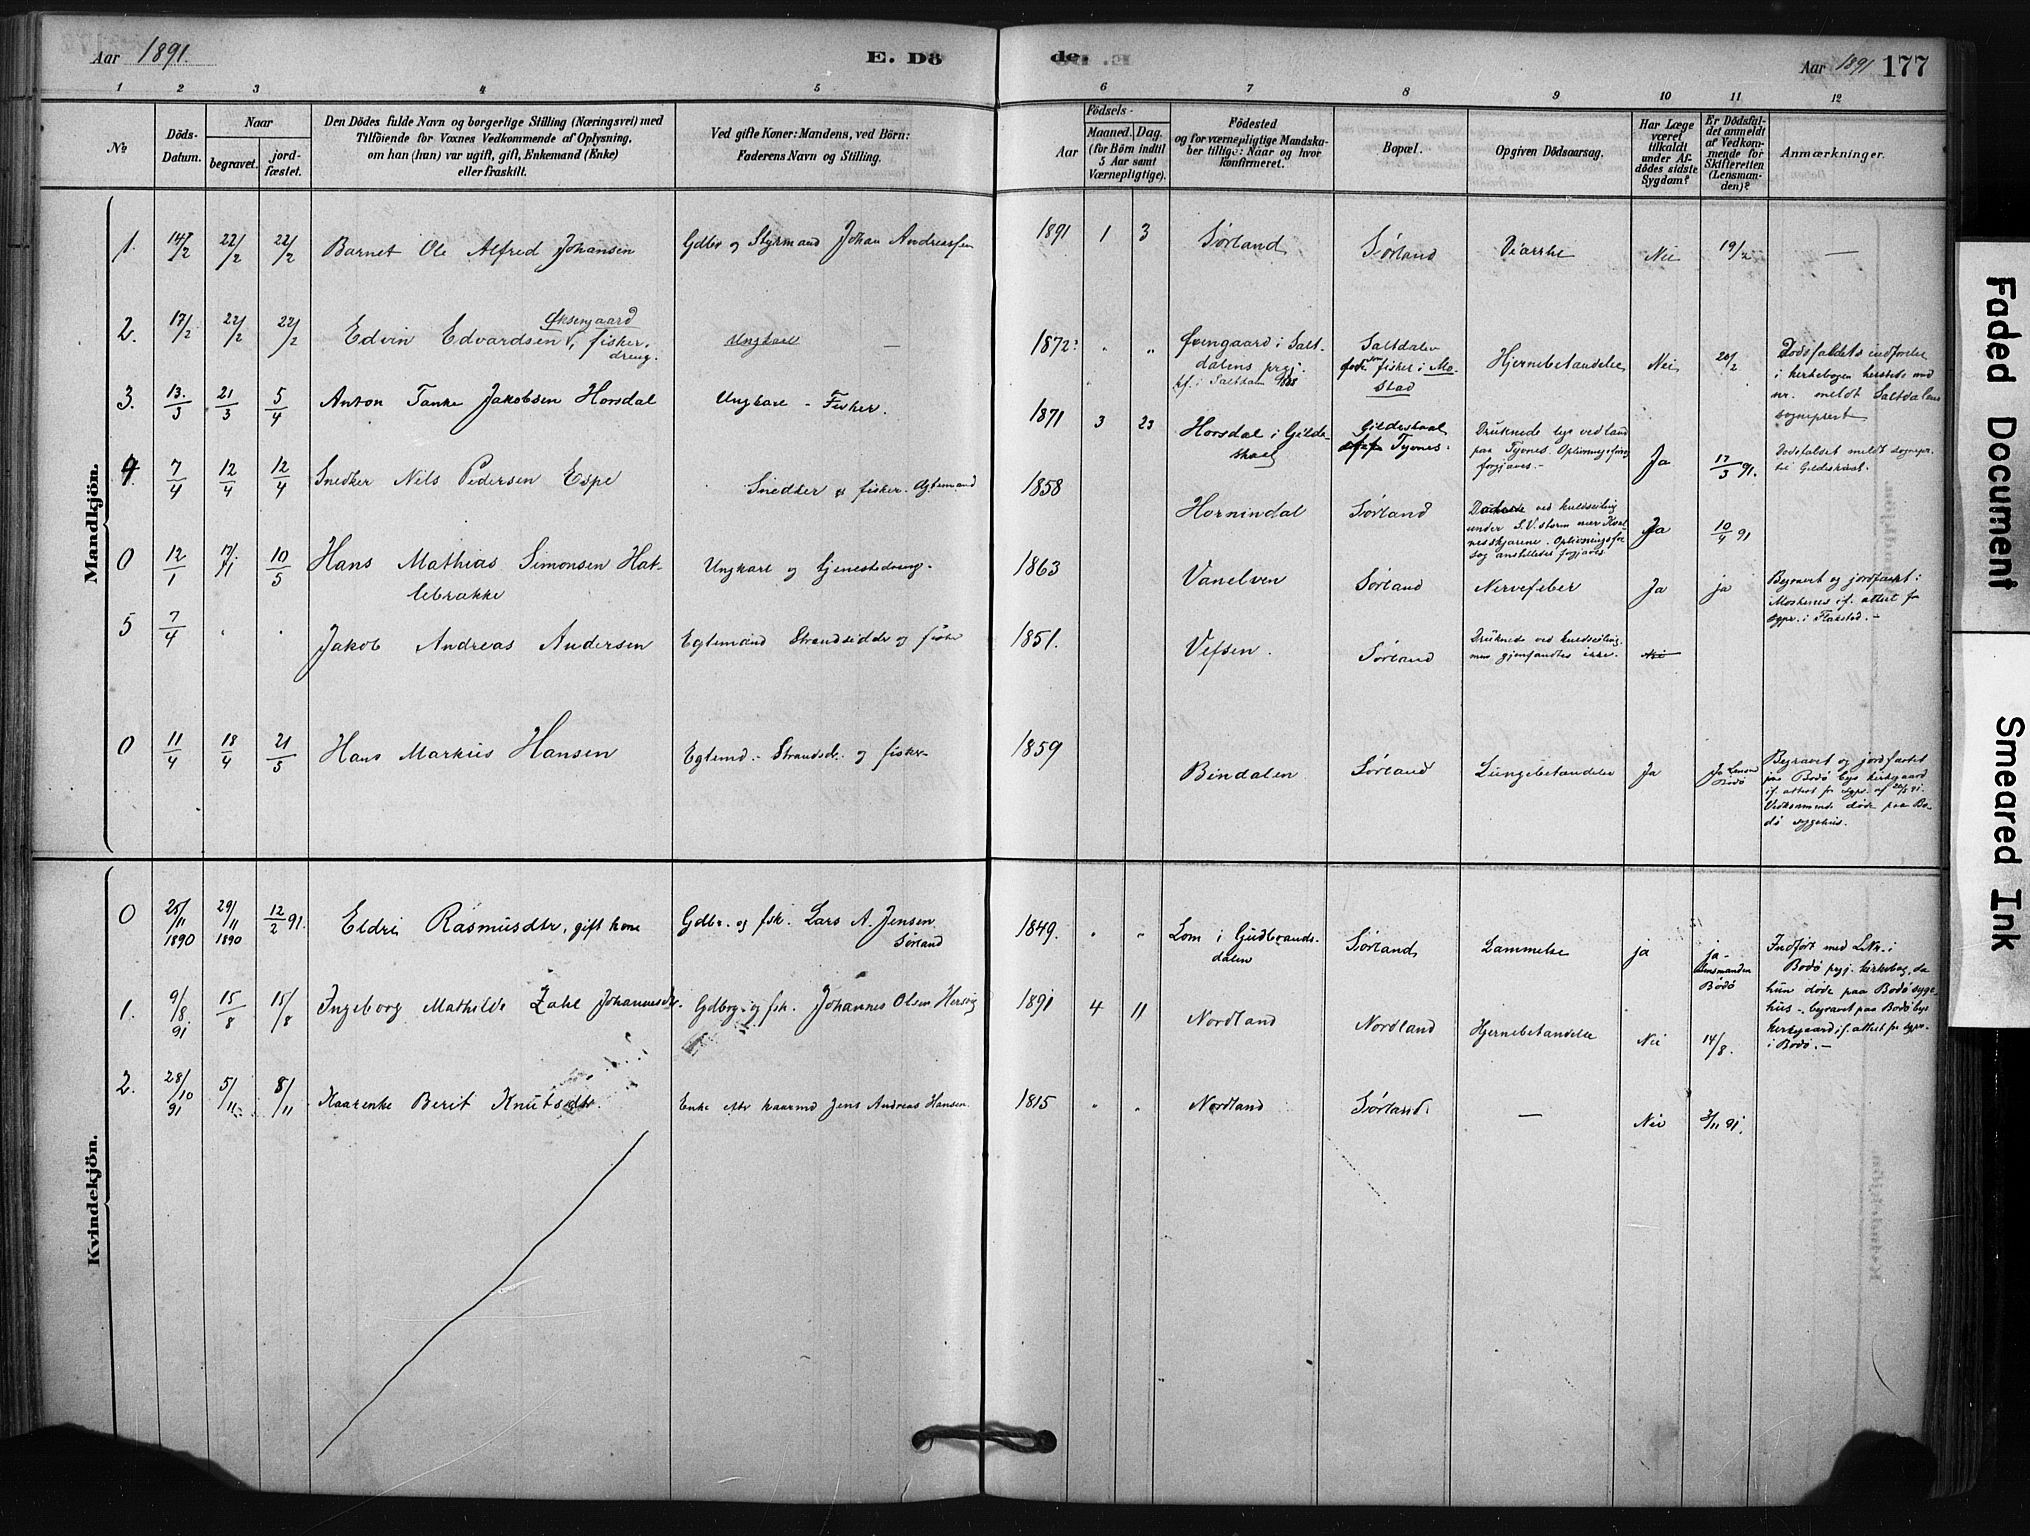 Aar 1891. E. Dö
de. Aar 1891 177
1 2 3 4 5 6 7 8 9 10 11 12
No
Döds-
Datum.
Naar
begravet.
jord-
fæstet.
Den Dödes fulde Navn og borgerlige Stilling (Næringsvei) med
Tilföiende for Voxnes Vedkommende af Oplysning,
om han (hun) var ugift, gift, Enkemand (Enke)
eller fraskilt.
Ved gifte Koner: Mandens, ved Börn:
Faderens Navn og Stilling.
Födsels-
Aar
Maaned. Dag.
(for Börn indtil
5 Aar samt
Værnepligtige).
Födested
og for værnepligtige Mandska-
ber tillige: Naar og hvor
konfirmeret.
Bopæl.
Opgiven Dödsaarsag.
Har Læge
været
tilkaldt
under Af-
dödes sidste
Sygdom?
Er Dödsfal-
det anmeldt
af Vedkom-
mende for
Skifteretten
(Lensman-
den)?
Anmærkninger.
Mandkjön.
1. 14/2 22/2 22/2 Barnet Ole Alfred Johansen Gdbr og Styrmand Johan Andreassen 1891 1 3 Sørland Sørland Diarrhe Nei 19/2 —
2. 17/2 22/2 22/2 Edvin Edvardsen Øksengaard, fisker-
dreng. Ungkarl — 1872? " " Øxengaard i Salt-
dalens prgj.
kf. i Saltdalen Saltdalen
fisker i Mo-
stad Hjernebetændelse Nei 20/2 Dødsfaldets indførelse
i kirkebogen hersteds med
nr. meldt Saltdalens
sogneprest
3. 13/3 21/3 5/4 Anton Tanke Jakobsen Horsdal Ungkarl - Fisker. 1871 3 23 Horsdal i Gilde-
skaal Gildeskaal
Tyvnes. Druknede lige ved land
paa Tyvnes. Oplivningsforsøg
forgjæves. - Ja 17/3 91. Dødsfaldet meldt sognepr.
til Gildeskaal.
4. 7/4 12/4 12/4 Snedker Nils Pedersen Espe Snedker & fisker. Egtemand 1858 Hornindal Sørland Druknede ved kuldseiling
under S.V. storm nær
Oplivningsfor-
søg anstilledes forgjæves Ja 10/4 91
0 12/1 17/1 10/5 Hans Mathias Simonsen Hat-
lebrække Ungkarl og tjenestedreng. 1863 Vanelven Sørland Nervefeber Ja ja Begravet og jordfæstet i
Moskenes if. attest fr
sgpr. i Flakstad. -
5 7/4 . . Jakob Andreas Andersen Egtemand Strandsidder og fisker 1851. Vefsen. Sørland Druknede ved kuldseiling,
men gjenfandtes ikke. Nei
0 11/4 18/4 21/5 Hans Markus Hansen Egtemd. - Strandsdr. og fisker- 1859 Bindalen Sørland Lungebetændelse Ja Ja Lensm
Bodø Begravet og jordfæstet
paa Bodø bys kirkegaard
if. attest fr sgpr. af
Vedkommende døde paa Bo-
dø sygehus.
Kvindekjön.
0 25/11 1890 29/11 1890 12/2 91. Eldri Rasmusdtr, gift kone Gdbr. og fsk. Lars A. Jensen
Sørland 1849. " " Lom i Gudbrands-
dalen Sørland Lammelse ja ja -
Lensmanden
Bodø Indført med LNr. i
Bodø prgj. kirkebog, da
hun døde paa Bodø syge-
hus - begravet paa Bodø bys
kirkegaard if. attest fr sgpr.
i Bodø. -
1. 9/8 91 15/8 15/8 Ingeborg Mathilde Zahl Johannesdtr. Gdbrg. og fsk. Johannes Olsen 1891 4 11 Nordland Nordland Hjernebetændelse Nei 14/8.
2. 28/10 91 5/11 8/11 Kaarenke Berit Knutsdtr. Enke eftr kaarmd Jens Andreas Hansen 1815 " " Nordland Sørland — Nei 3/11 91.
Faded Document
Smeared Ink